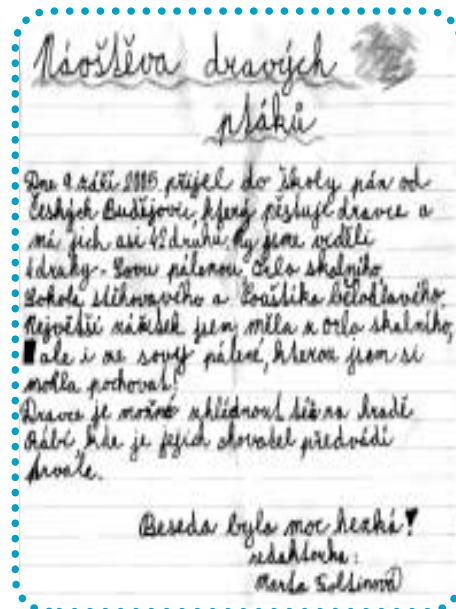 Náoštěva dravých
ptáků
Dne 9. září 2005 přijel do školy pán od
Českých Budějovic, který pěstuje dravce a
má jich asi 42 druhů. My jsme viděli
4 druhy - Sovu pálenou, Orla skalního,
Sokola stěhovavého a
Největší zážitek jsem měla z Orla skalního,
ale i ze sovy pálené, kterou jsem si
mohla pochovat!
Dravce je možné zhlédnout též na hradě
Rábí, kde je jejich chovatel předvádí
trvale.
Beseda byla moc hezká!
redaktorka:
Marta